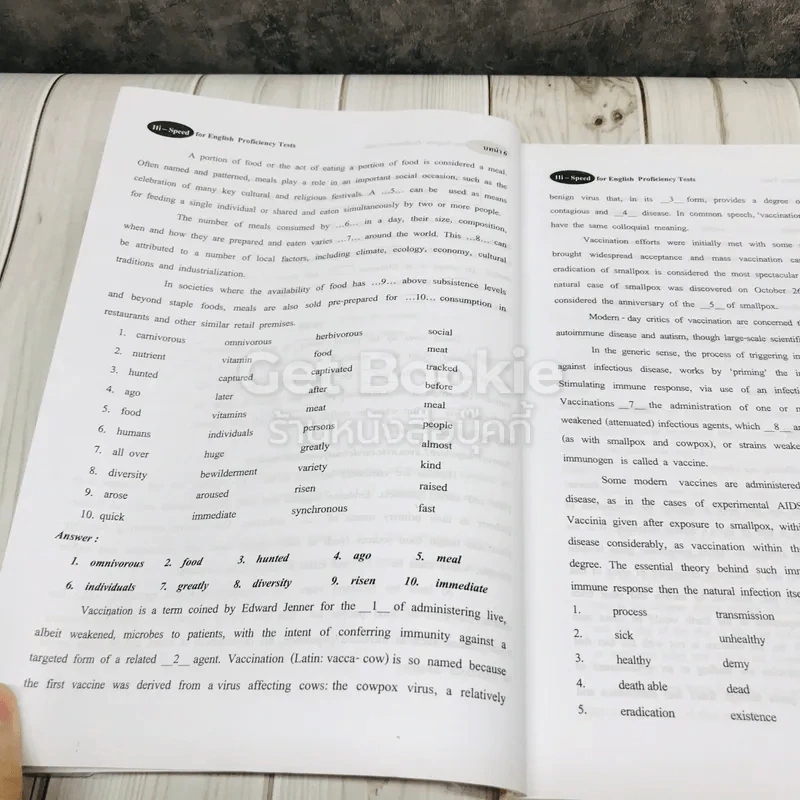 Hi – Speed for English Proficiency Tests
บทที่ 6
A portion of food or the act of eating a portion of food is considered a meal.
Often named and patterned, meals play a role in an important social occasion, such as the
celebration of many key cultural and religious festivals. A ...5... can be used as means
for feeding a single individual or shared and eaten simultaneously by two or more people.
The number of meals consumed by ...6... in a day, their size, composition,
when and how they are prepared and eaten varies ...7... around the world. This ...8... can
be attributed to a number of local factors, including climate, ecology, economy, cultural
traditions and industrialization.
In societies where the availability of food has ...9... above subsistence levels
and beyond staple foods, meals are also sold pre-prepared for ...10... consumption in
restaurants and other similar retail premises.
1. carnivorous omnivorous herbivorous social
2. nutrient vitamin food meat
3. hunted captured captivated tracked
4. ago later after before
5. food vitamins meat meal
6. humans individuals persons people
7. all over huge greatly almost
8. diversity bewilderment variety kind
9. arose aroused risen raised
10. quick immediate synchronous fast
Answer :
1. omnivorous 2. food 3. hunted 4. ago 5. meal
6. individuals 7. greatly 8. diversity 9. risen 10. immediate
Vaccination is a term coined by Edward Jenner for the __1__ of administering live,
albeit weakened, microbes to patients, with the intent of conferring immunity against a
targeted form of a related __2__ agent. Vaccination (Latin: vacca- cow) is so named because
the first vaccine was derived from a virus affecting cows: the cowpox virus, a relatively
Hi – Speed for English Proficiency Tests
benign virus that, in its __3__ form, provides a degree o
contagious and __4__ disease. In common speech, 'vaccination
have the same colloquial meaning.
Vaccination efforts were initially met with some
brought widespread acceptance and mass vaccination ca
eradication of smallpox is considered the most spectacular
natural case of smallpox was discovered on October 26
considered the anniversary of the __5__ of smallpox.
Modern - day critics of vaccination are concerned
autoimmune disease and autism, though large-scale scientifi
In the generic sense, the process of triggering im
against infectious disease, works by 'priming' the i
Stimulating immune response, via use of an infecti
Vaccinations __7__ the administration of one or m
weakened (attenuated) infectious agents, which __8__ a
(as with smallpox and cowpox), or strains weake
immunogen is called a vaccine.
Some modern vaccines are administered
disease, as in the cases of experimental AIDS
Vaccinia given after exposure to smallpox, withi
disease considerably, as vaccination within th
degree. The essential theory behind such imm
immune response then the natural infection itse
1. process transmission
2. sick unhealthy
3. healthy demy
4. death able dead
5. eradication existence
Get Bookie
ร้านหนังสือบุ๊คกี้